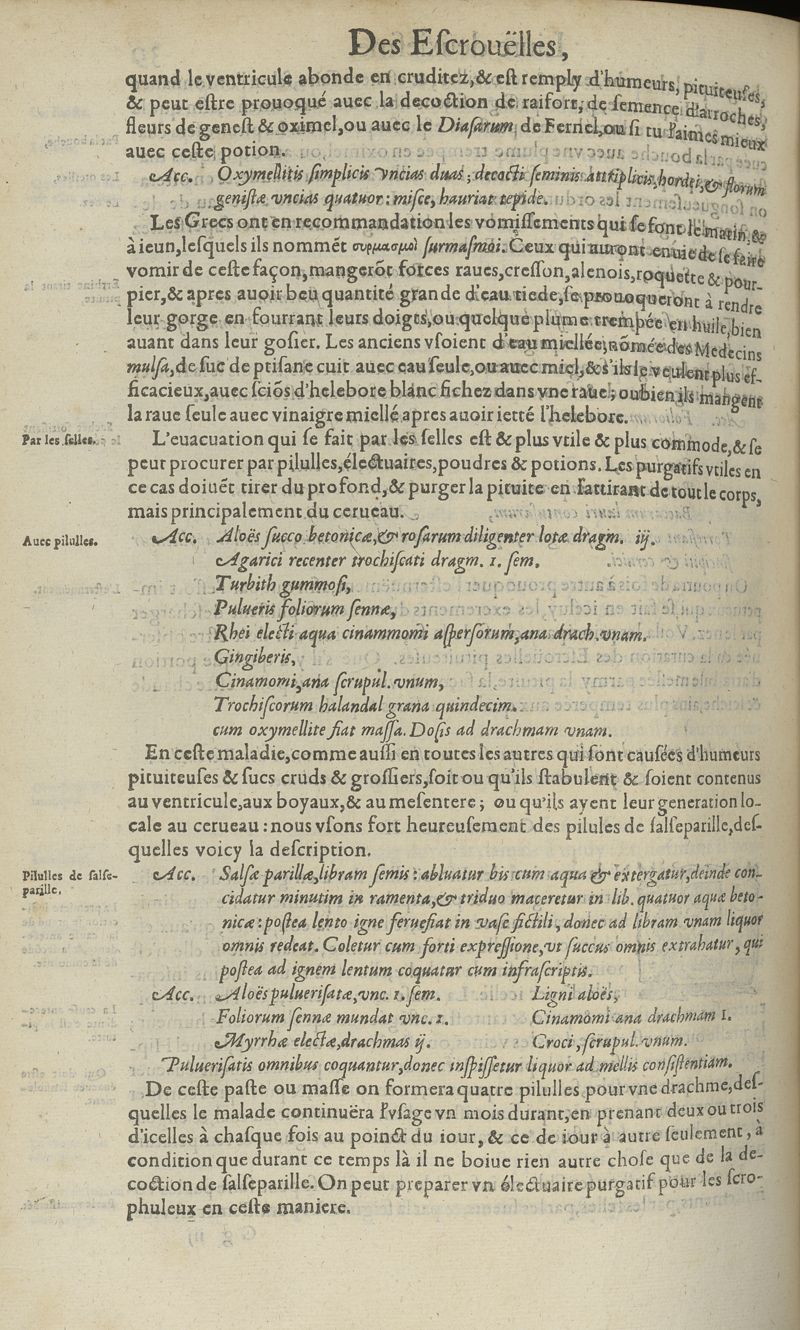 Des Eſcrouëlles,
quand le ventricule abonde en cruditez,& eſt remply d'humeurs, pituiteuſes,
& peut eſtre prouoqué auec la decoction de raifort, de ſemence d'arroches,
fleurs de geneſt & oximel,ou auec le Diaſarum de Fernel,ou ſi tu l'aimes mieux
auec ceſte potion.
Acc. Oxymellitis ſimplicis vncias duas; decocti ſeminis attriplicis, hordei, & florum
geniſtæ vncias quatuor: miſce, hauriat tepide.
Les Grecs ont en recommandation les vomiſſements qui ſe font le matin, &
à ieun,leſquels ils nommēt συρμαισμοὶ ſurmaſmoi. Ceux qui auront enuie de ſe faire
vomir de ceſte façon,mangerōt forces raues,creſſon,alenois,roquette & pour-
pier,& apres auoir beu quantité grande d'eau tiede,ſe prouoqueront à rendre
leur gorge en fourrant leurs doigts,ou quelque plume trempée en huile,bien
auant dans leur goſier. Les anciens vſoient d'eau miellée, nōmée des Medecins
mulſa,de ſuc de ptiſane cuit auec eau ſeule,ou auec miel,& s'ils le veulent plus ef-
ficacieux,auec ſciōs d'helebore blanc fichez dans vne raue; ou bien ils mangent
la raue ſeule auec vinaigre miellé apres auoir ietté l'helebore.
Par les ſelles.
L'euacuation qui ſe fait par les ſelles eſt & plus vtile & plus commode,& ſe
peut procurer par pilulles,électuaires,poudres & potions. Les purgatifs vtiles en
ce cas doiuēt tirer du profond,& purger la pituite en l'attirant de tout le corps,
mais principalement du cerueau.
Auec pilulles.
Acc. Aloës ſucco betonicæ,& roſarum diligenter lotæ dragm. ij.
Agarici recenter trochiſcati dragm. 1. ſem.
Turbith gummoſi,
Pulueris foliorum ſennæ,
Rhei electi aqua cinammomi aſperſorum,ana drach.vnam.
Gingiberis,
Cinamomi,ana ſcrupul. vnum,
Trochiſcorum halandal grana quindecim.
cum oxymellite fiat maſſa. Doſis ad drachmam vnam.
En ceſte maladie,comme auſſi en toutes les autres qui ſont cauſées d'humeurs
pituiteuſes & ſucs cruds & groſſiers,ſoit ou qu'ils ſtabulent & ſoient contenus
au ventricule,aux boyaux,& au meſentere; ou qu'ils ayent leur generation lo-
cale au cerueau: nous vſons fort heureuſement des pilules de ſalſeparille,deſ-
quelles voicy la deſcription.
Pilulles de ſalſe-
parille.
Acc. Salſæ parillæ,libram ſemis: abluatur bis cum aqua & extergatur,deinde con-
cidatur minutim in ramenta,& triduo maceretur in lib. quatuor aquæ beto-
nicæ: poſtea lento igne feruefiat in vaſe fictili, donec ad libram vnam liquor
omnis redeat. Coletur cum forti expreſſione,vt ſuccus omnis extrahatur, qui
poſtea ad ignem lentum coquatur cum infraſcriptis.
Acc. Aloës pulueriſatæ,vnc. 1. ſem. Ligni aloës,
Foliorum ſennæ mundat vnc. 1. Cinamomi ana drachmam 1.
Myrrhæ electæ,drachmas ij. Croci, ſcrupul. vnum.
Pulueriſatis omnibus coquantur,donec inſpiſſetur liquor ad mellis conſiſtentiam.
De ceſte paſte ou maſſe on formera quatre pilulles pour vne drachme,deſ-
quelles le malade continuëra l'vſage vn mois durant,en prenant deux ou trois
d'icelles à chaſque fois au poinct du iour, & ce de iour à autre ſeulement, à
condition que durant ce temps là il ne boiue rien autre choſe que de la de-
coction de ſalſeparille. On peut preparer vn électuaire purgatif pour les ſcro-
phuleux en ceſte maniere.